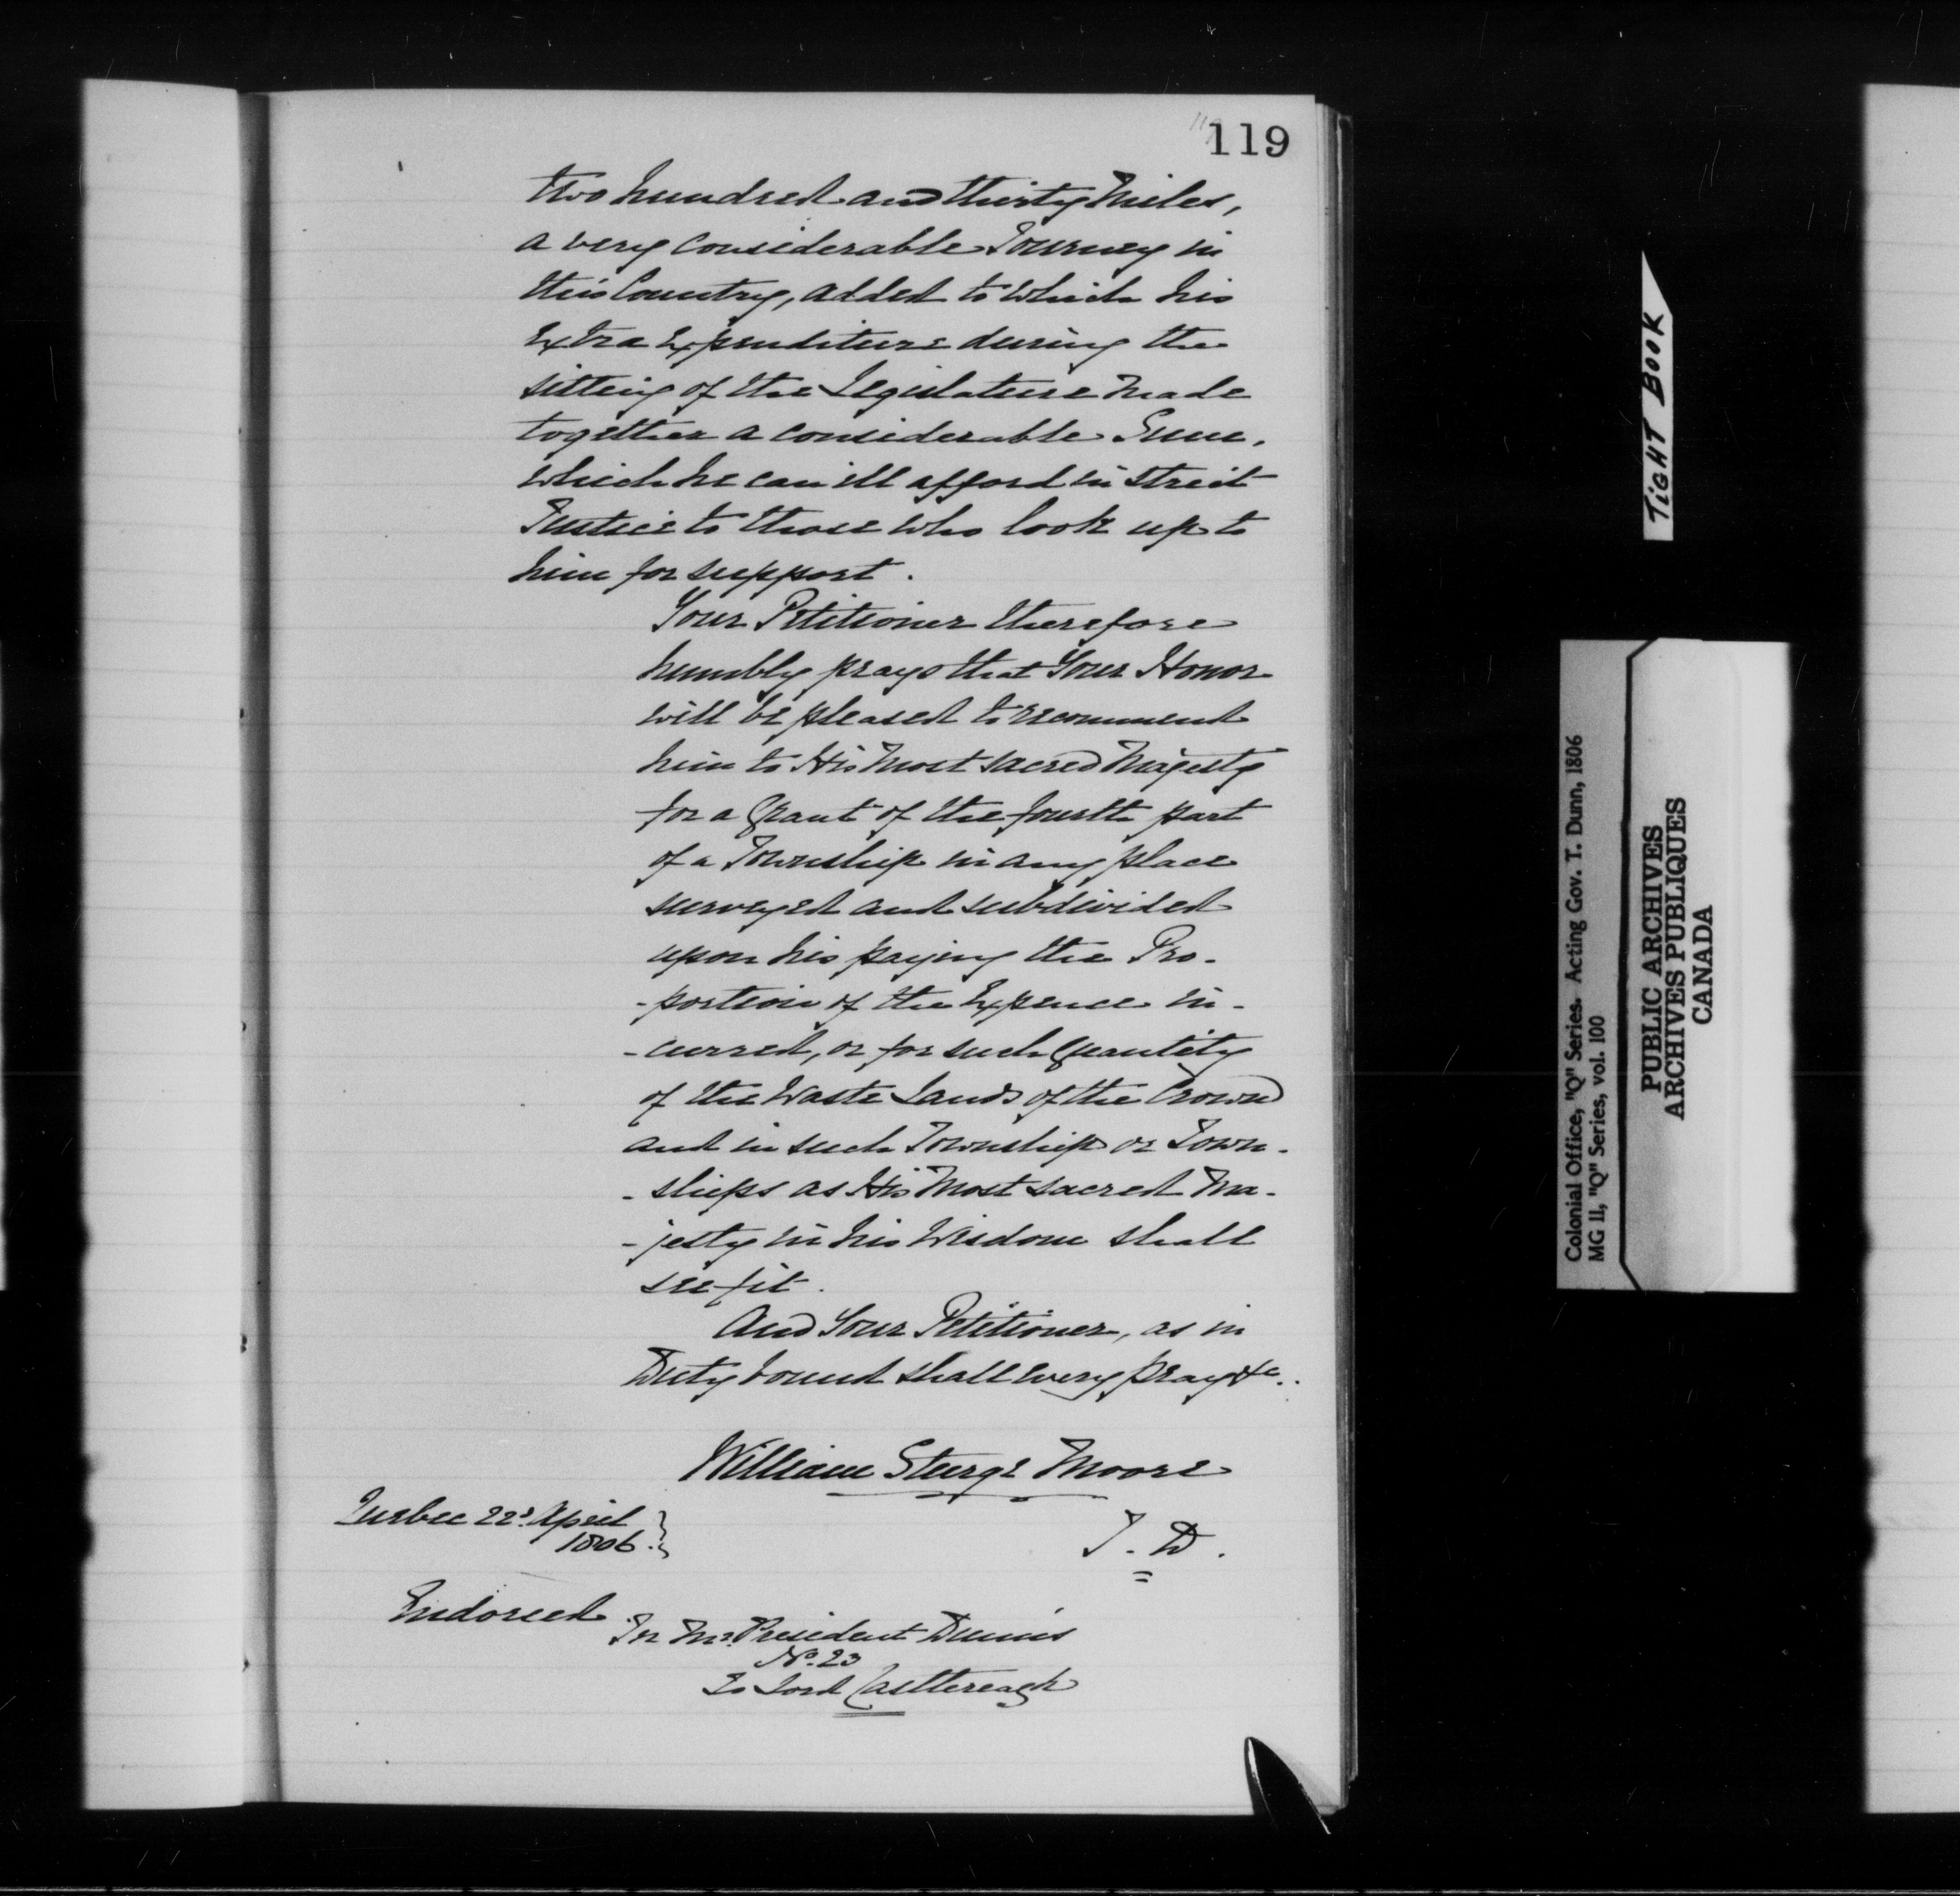 119
two hundred and thirty Miles,
a very Considerable Journey in
this Country, added to which his
Extra Expenditure during the
sitting of the Legislature Made
together a considerable Sum,
which he can ill afford in strict
Justice to those who look up to
him for support.
Your Petitioner therefore
humbly prays that Your Honor
will be pleased to recommend
him to His Most sacred Majesty
for a Grant of the fourth part
of a Township in any place
surveyed and subdivided
upon his paying the Pro-
-portion of the Expence in-
-curred, or for such Quantity
of the Waste Lands of the Crown
and in such Township or Town-
-ships as His Most sacred Ma-
-jesty in his Wisdom shall
see fit.
And Your Petitioner, as in
Duty bound shall every pray &c.
William Sturge Moore
Quebec 22d. April
1806.
T. D.
Endorsed
In Mr. President Dunn's
No. 23
To Lord Castlereagh
TIGHT BOOK
Colonial Office, "Q" Series. Acting Gov. T. Dunn, 1806
MG 11, "Q" Series, vol. 100
PUBLIC ARCHIVES
ARCHIVES PUBLIQUES
CANADA